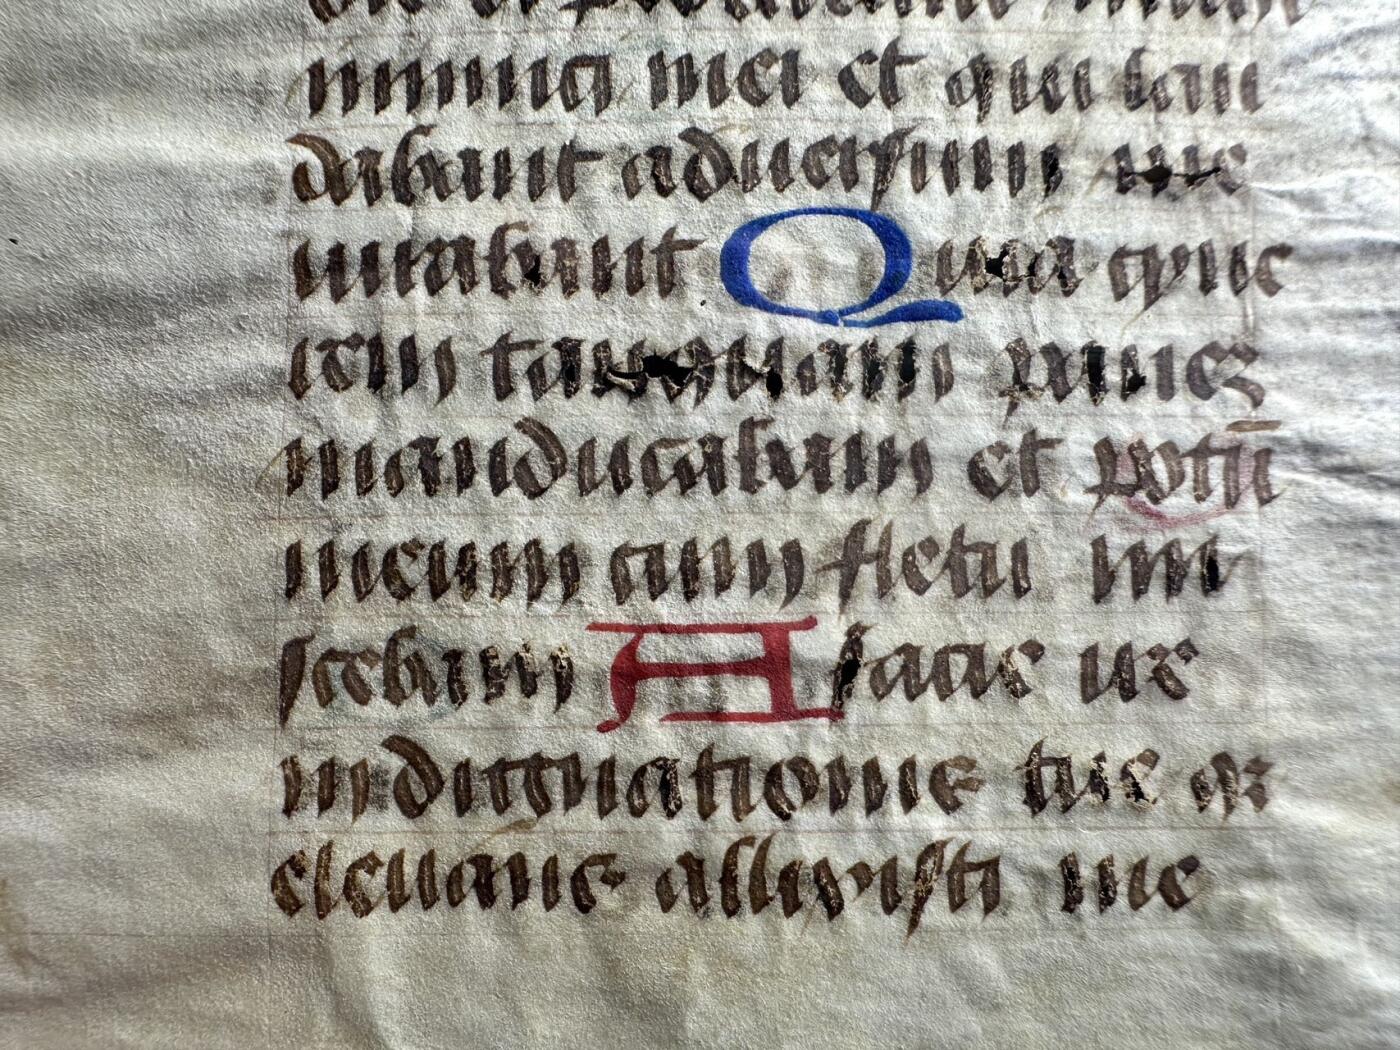 inimici mei et qui lau
dabant aduersum me
iurabant Quia cyne
rem tanquam panez
manducabam et potū
meum cum fletu mi
scebam A facie ire
indignationis tue qr
eleuans allixisti me